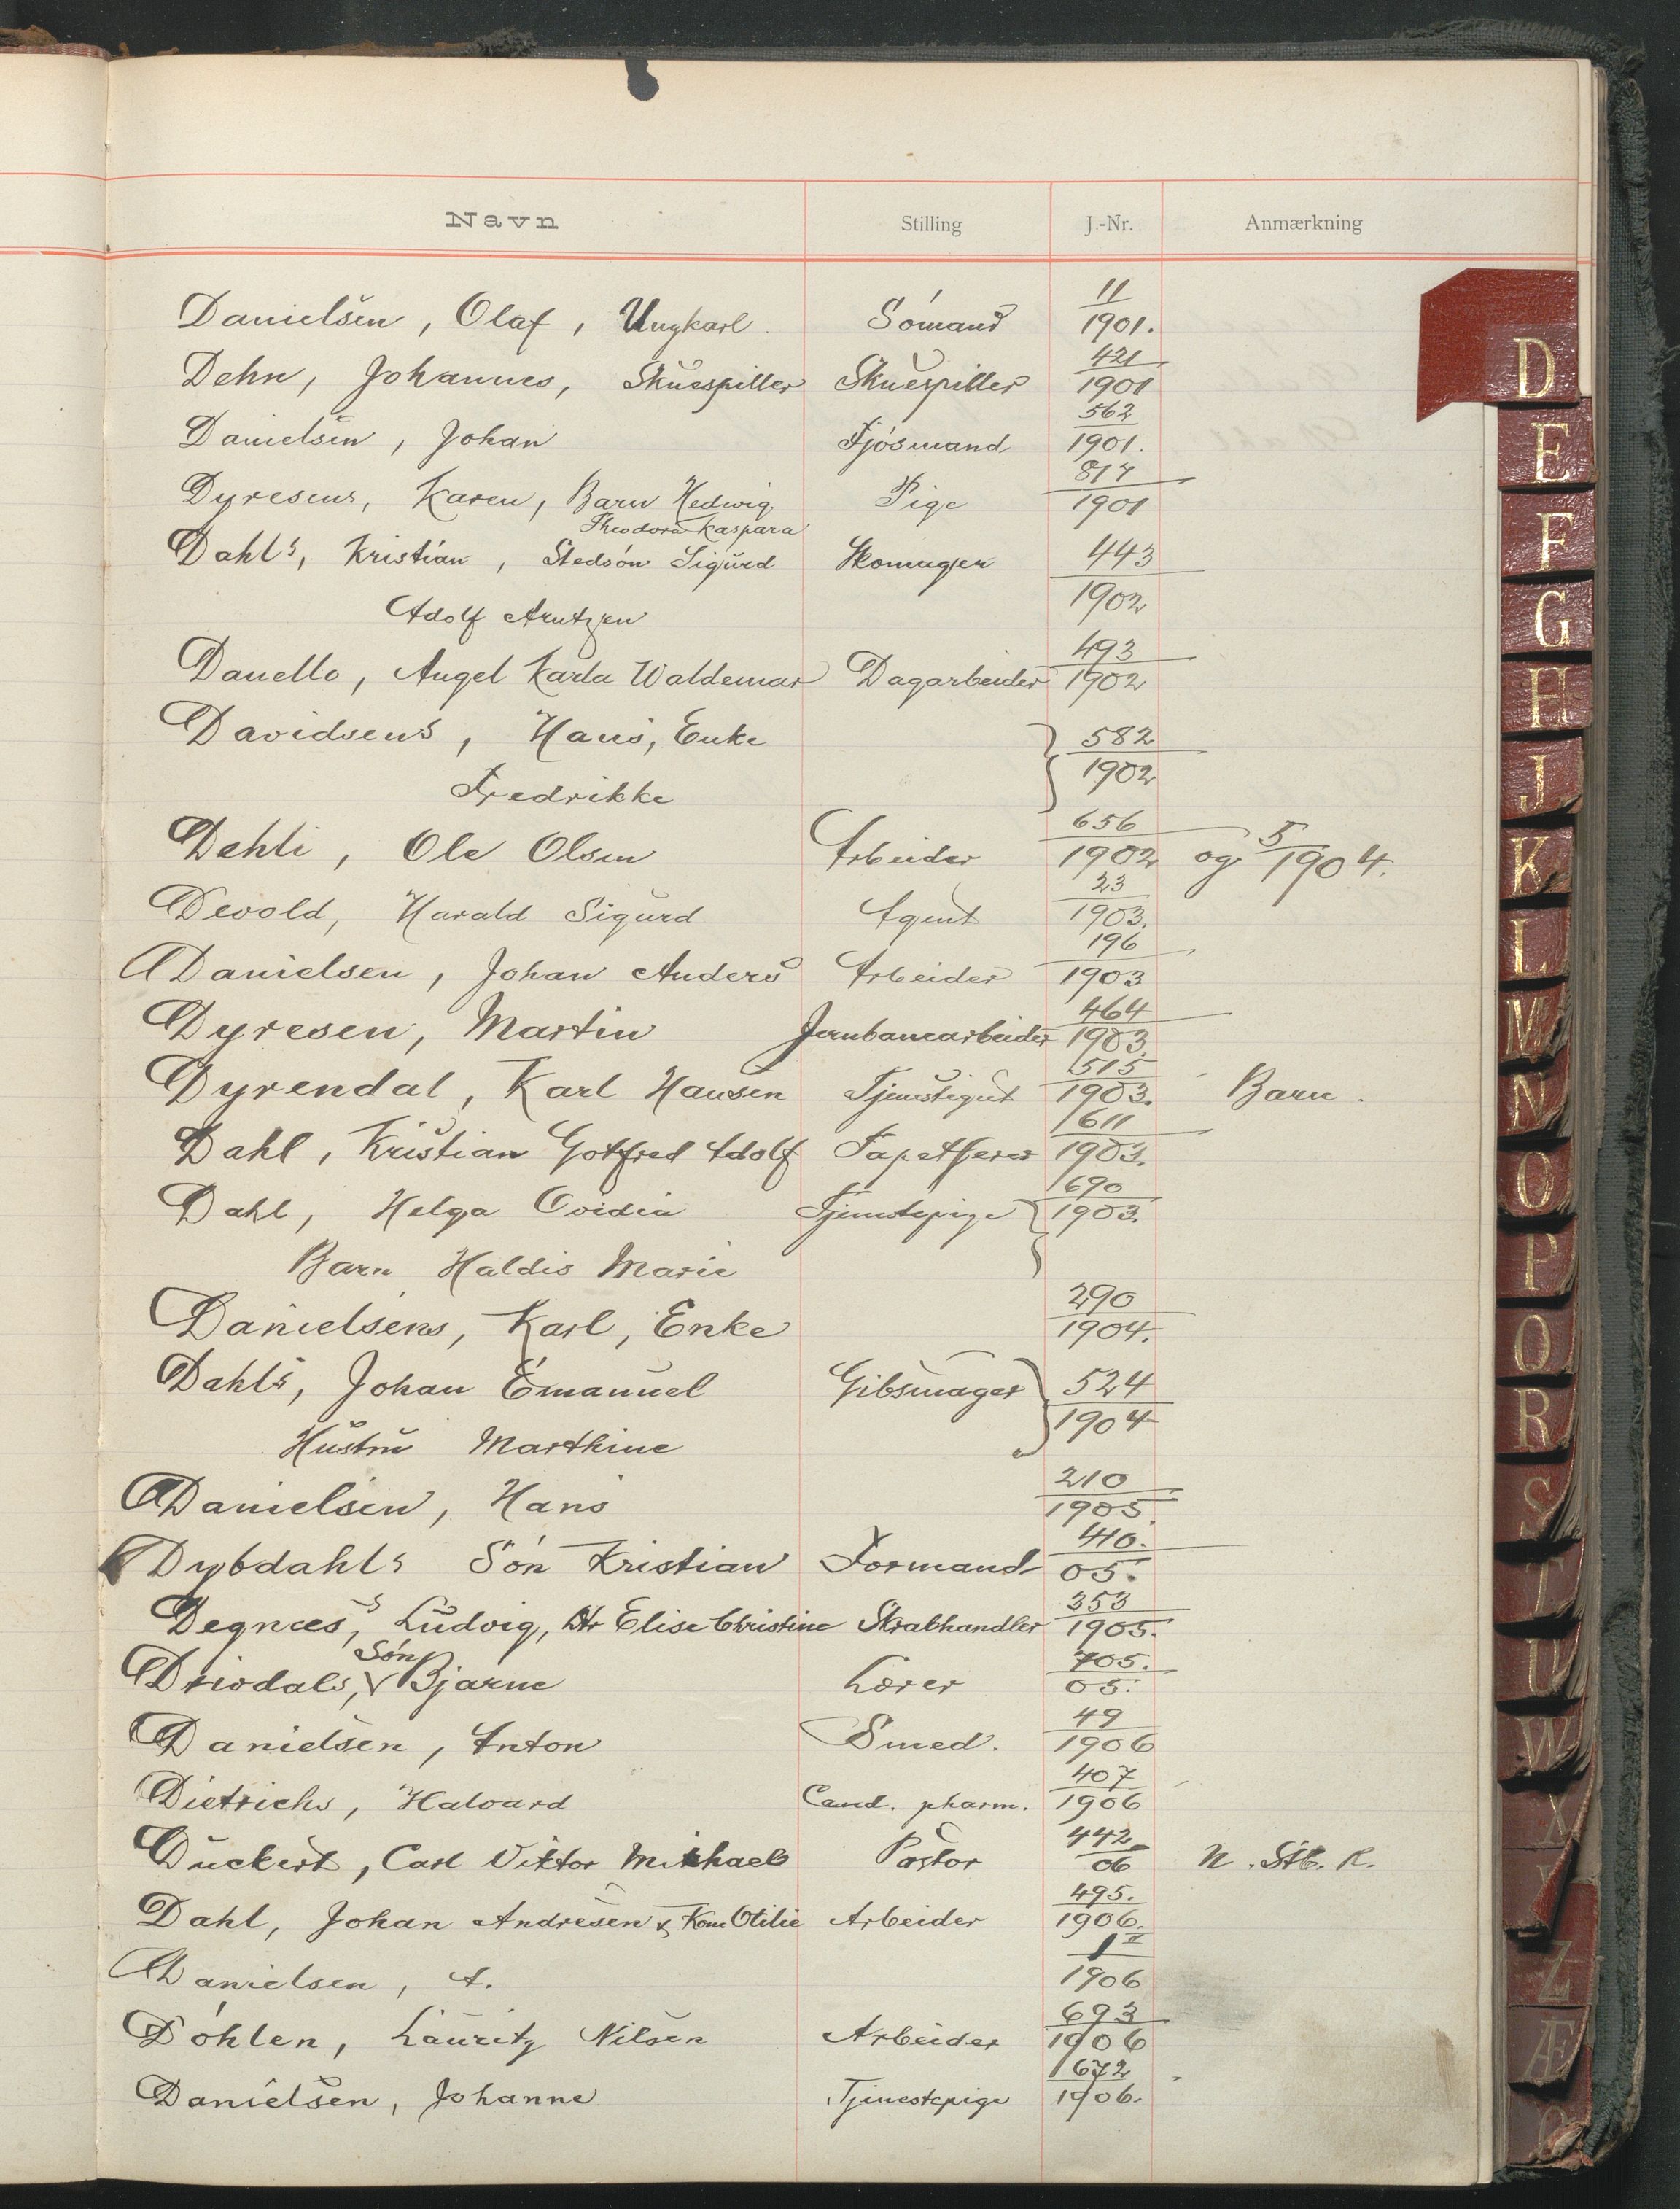 Navn Stilling J.-Nr. Anmærkning
Danielsen, Olaf, Ungkarl. Sömand 11/1901.
Dehn, Johannes, Skuespiller Skuespiller 421/1901
Danielsen, Johan Fjösmand 562/1901.
Dyresens, Karen, Barn Hedwig Pige 817/1901
Theodora Kaspara
Dahls, Kristian, Stedsön Sigurd Skomager 443/1902
Adolf Arntzen
Danello, Angel Karla Waldemar Dagarbeider 493/1902
Davidsens, Hans, Enke 582/1902
Fredrikke
Dehli, Ole Olsen Arbeider 656/1902 og 5/1904.
Devold, Harald Sigurd Agent 23/1903.
Danielsen, Johan Anders Arbeider 196/1903
Dyresen, Martin Jernbanearbeider 464/1903.
Dyrendal, Karl Hansen Tjenestegut 515/1903. Barn.
Dahl, Kristian Gotfred Adolf Tapetserer 611/1903.
Dahl, Helga Ovidia Tjenestepige 690/1903.
Barn Haldis Marie
Danielsens, Karl, Enke 290/1904.
Dahls, Johan Emanuel Gibsmager 524/1904
Hustru Marthine
Danielsen, Hans 210/1905.
Dybdahls Sön Kristian Formand 410./05.
Degnæs's, Ludvig, Dtr Elise Christine Skrabhandler 353/1905.
Sön
Drivdals, Bjarne Lærer 705./05.
Danielsen, Anton Smed. 49/1906
Dietrichs, Halvard Cand. pharm. 407/1906
Duckert, Carl Viktor Mikhael Pastor 442/06 N. Stb. R.
Dahl, Johan Andresen & Kone Otilie Arbeider 495./1906.
Danielsen, A. 1 II/1906
Döhlen, Lauritz Nilsen Arbeider 693/1906
Danielsen, Johanne Tjenestepige 672/1906.
D
E
F
G
H
J
K
L
M
N
O
P
Q
R
S
T
U
W
X
Z
Æ